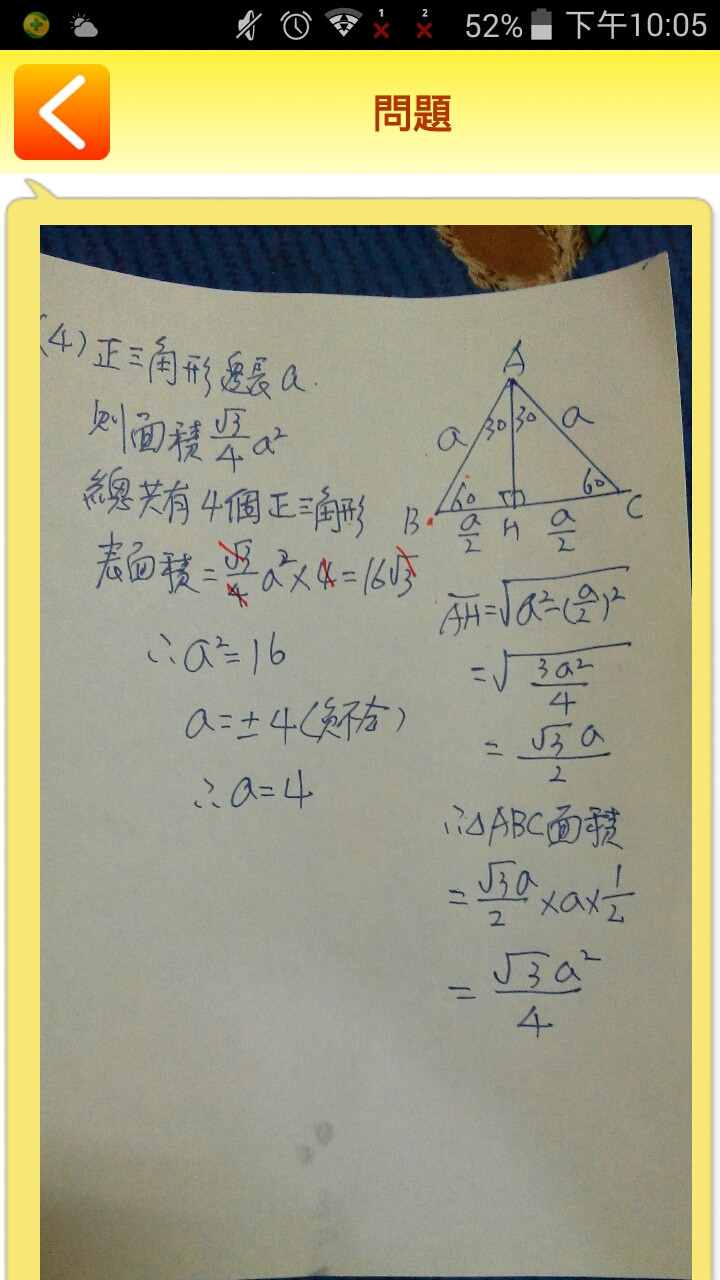 1 2 52% 下午10:05
問題
(4) 正三角形邊長a.
則面積 √3/4 a²
總共有4個正三角形
表面積 = √3/4 a² × 4 = 16√3
∴ a² = 16
a = ± 4 (負不合)
∴ a = 4
A
a 30 30 a
B 60 60 C
a/2 H a/2
AH = √(a² − (a/2)²)
= √(3a²/4)
= √3 a/2
∴ △ABC面積
= √3a/2 × a × 1/2
= √3 a²/4